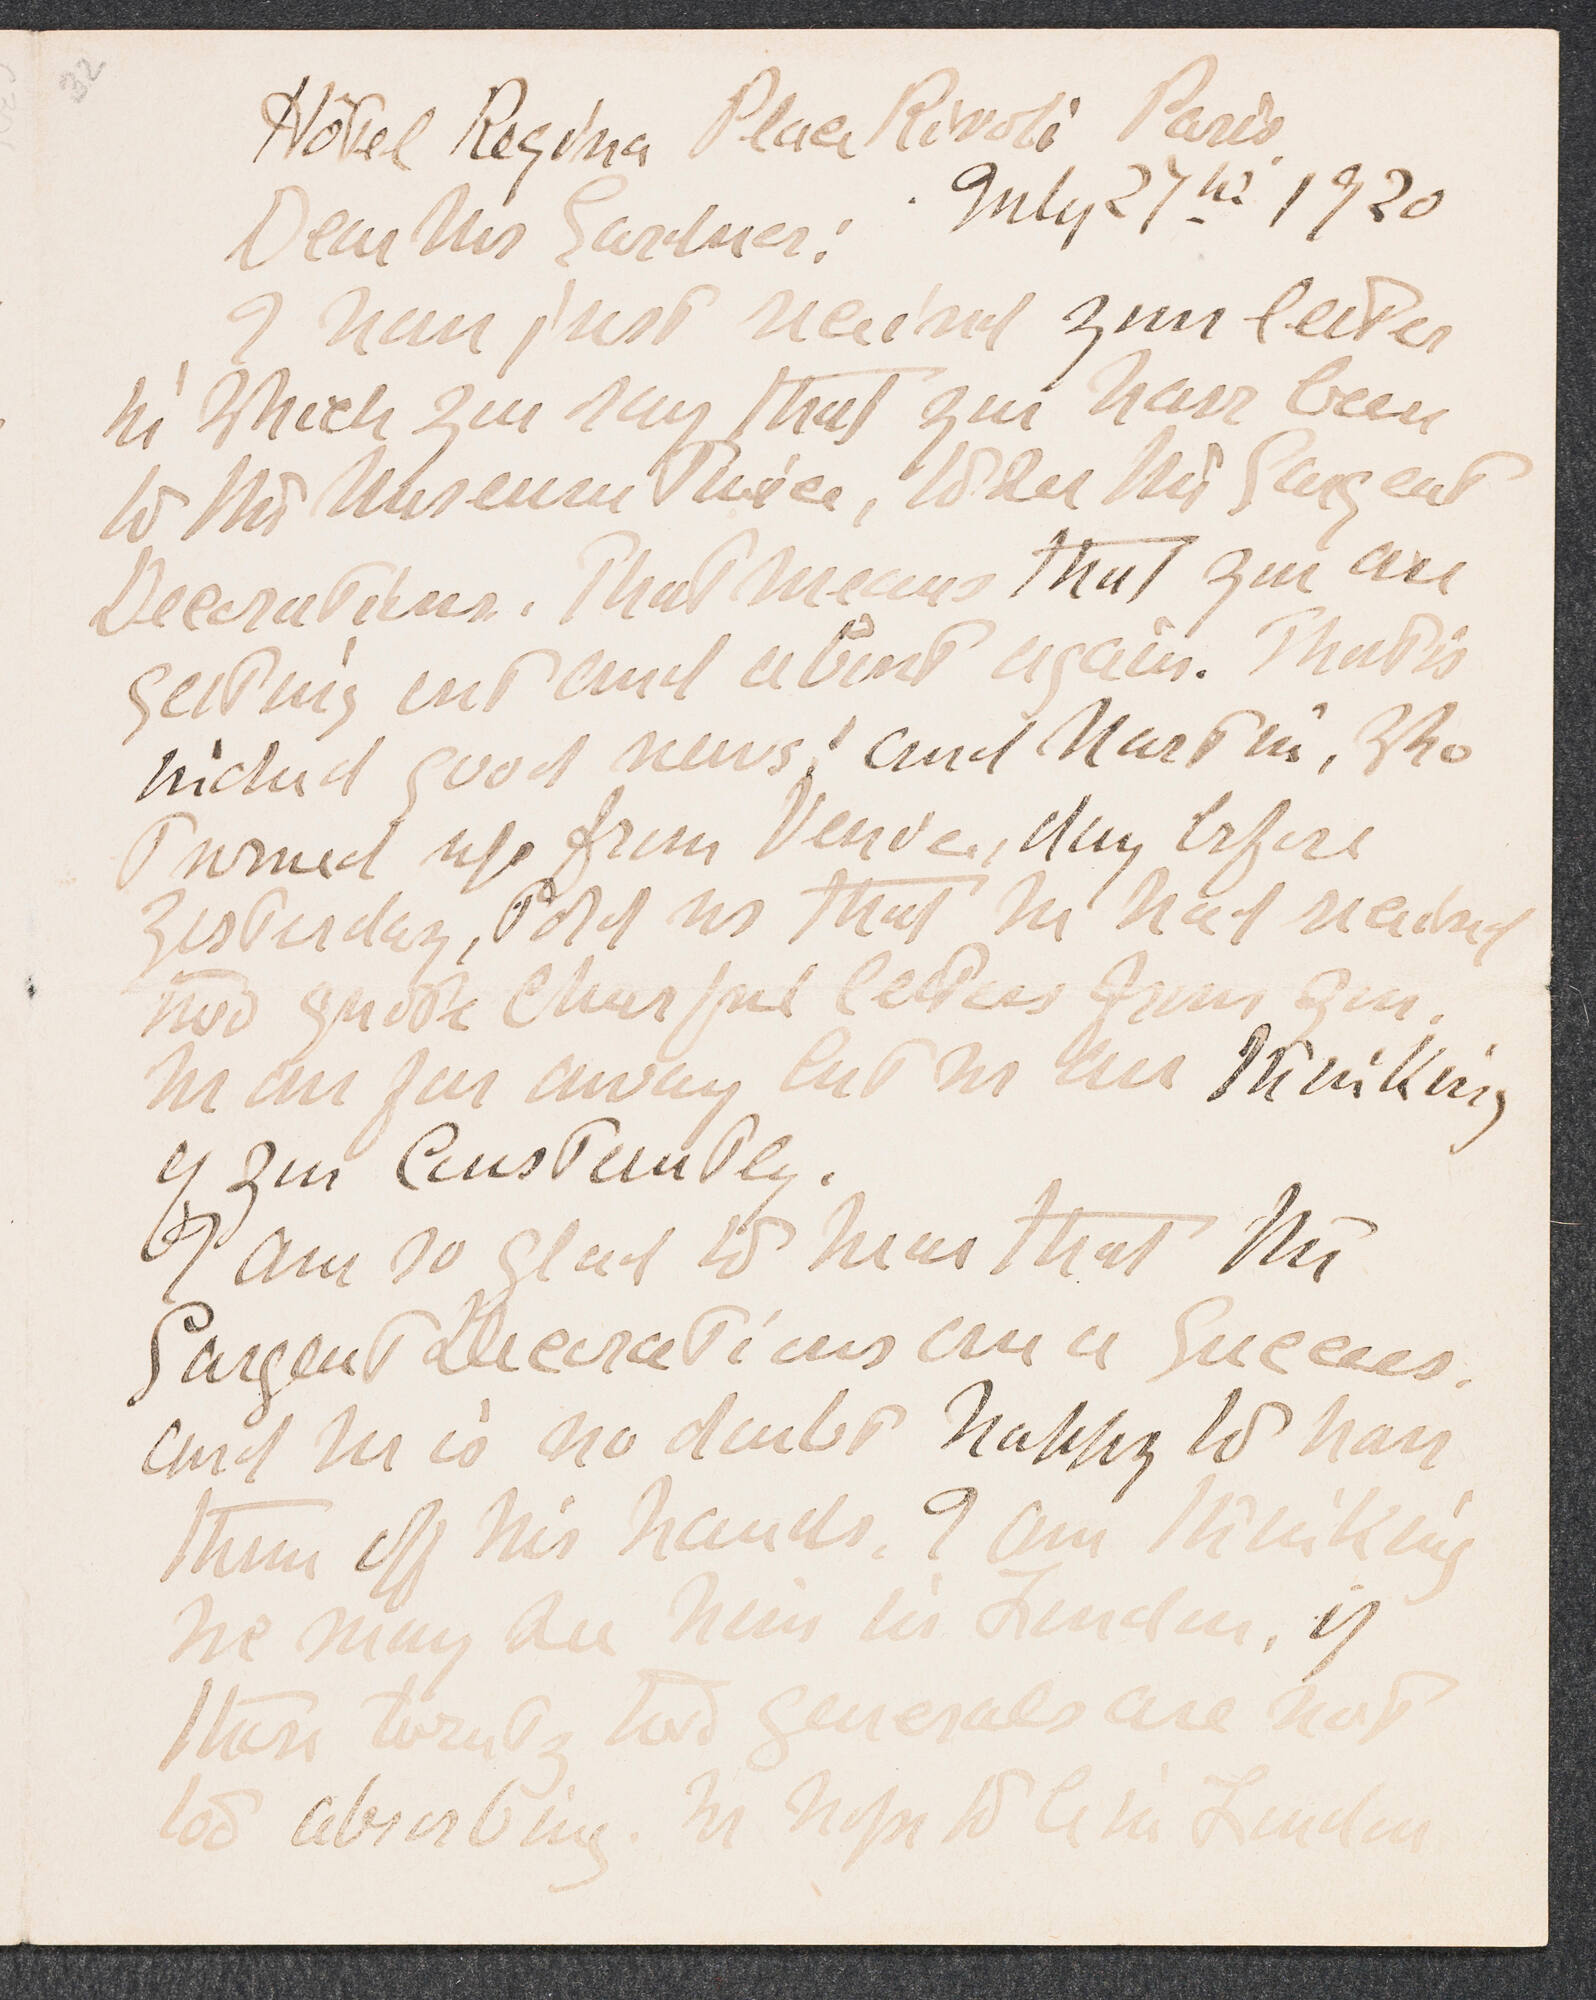 32
Hôtel Regina Place Rivoli Paris.
July 27th 1920
Dear Mrs Gardner:
I have just received your letter
in which you say that you have been
to the Museum twice, to see the Sargent
Decorations. That means that you are
getting out and about again. That is
indeed good news! and Martin, who
turned up from Venice, day before
yesterday, told us that he had received
two quite cheerful letters from you.
We are far away but we are thinking
of you constantly.
I am so glad to hear that the
Sargent Decorations are a success.
and he is no doubt happy to have
them off his hands. I am thinking
we may see him in London, if
those twenty two generals are not
too absorbing. We hope to be in London